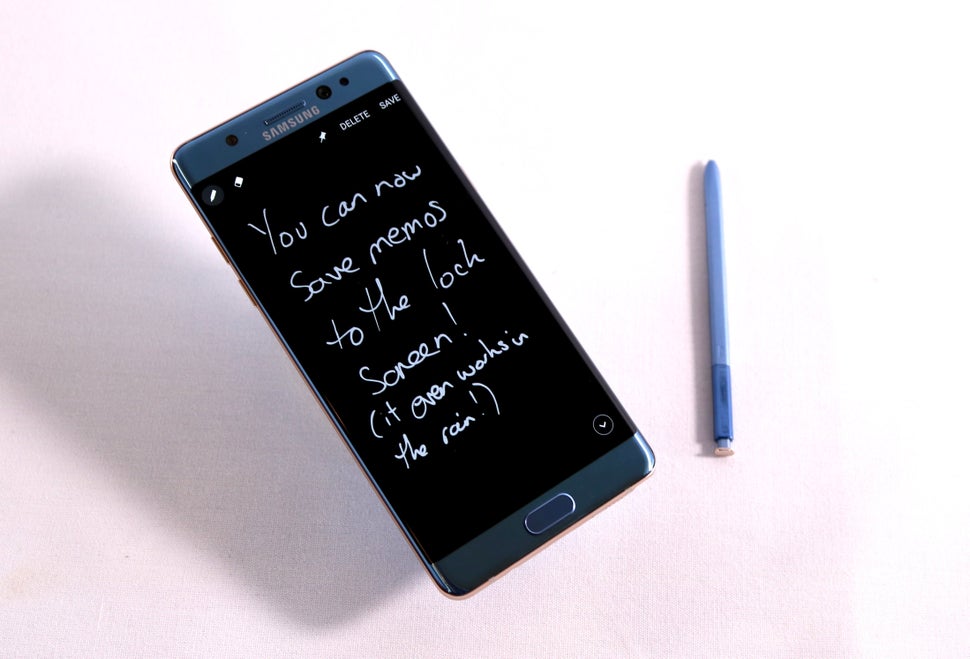 SAMSUNG
DELETE SAVE
You can now
save memos
to the lock
screen!
(it even works in
the rain!)